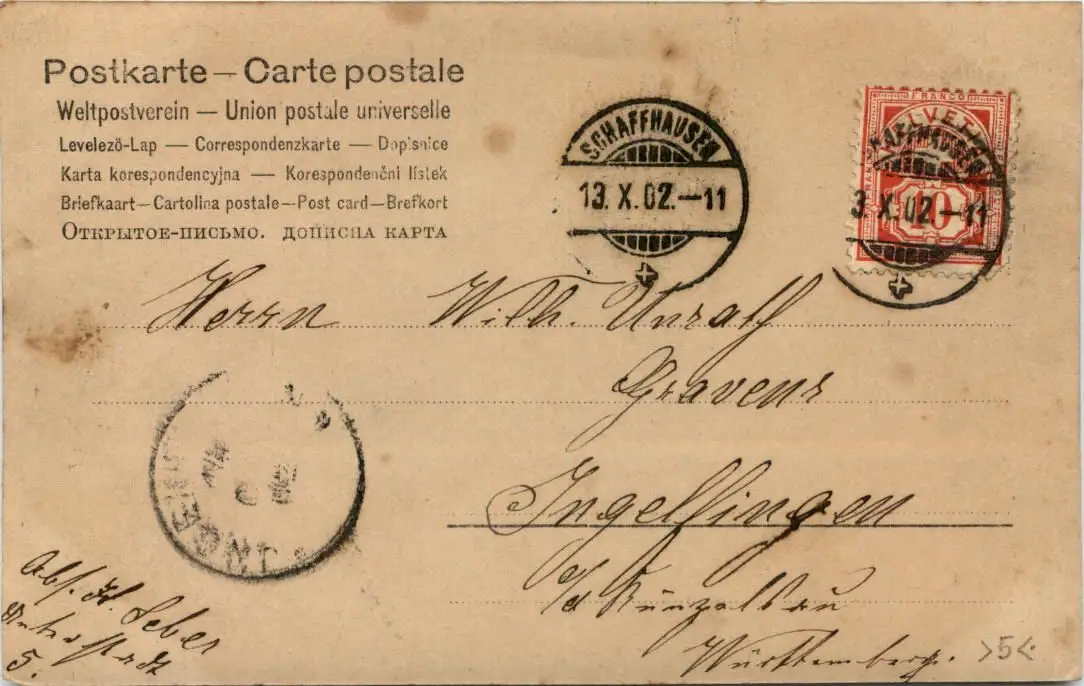 Postkarte — Carte postale
Weltpostverein — Union postale universelle
Levelezö-Lap — Correspondenzkarte — Dopisnice
Karta korespondencyjna — Korespondenční lístek
Briefkaart—Cartolina postale—Post card—Brefkort
Открытое-письмо. дописна карта
SCHAFFHAUSEN
13. X. 02.—11
FRANCO
HELVETIA
10
SCHAFFHAUSEN
3. X. 02.—11
Herrn Wilh. Unrath
Graveur
Ingelfingen
a/d Künzelsau
Württemberg.
Abs.
Unterstadt
5.
>5<